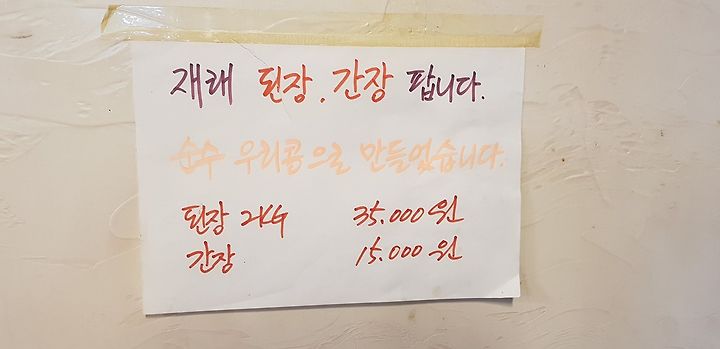 재래 된장. 간장 팝니다.
순수 우리콩으로 만들었습니다.
된장 2KG 35.000원
간장 15.000원